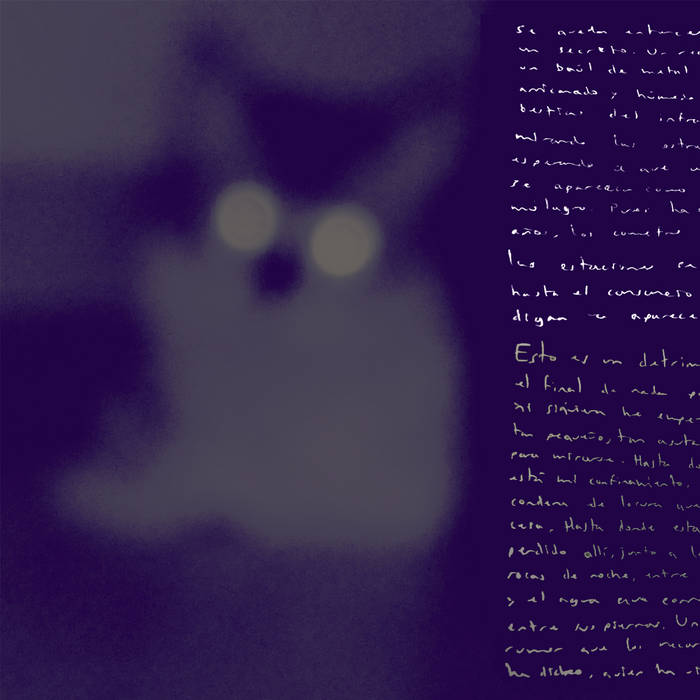 Se queda entonces
un secreto. Un re
un baúl de metal
arrinconado y húmedo
bestias del infra
mirando las estre
esperando a que u
se aparezca como
milagro. Pues ha
años, los cometas
las estaciones se
hasta el cansancio
digan
aparece
Esto es un detrim
el final de nada
ni siquiera he empe
tan pequeños, tan
para mirarse. Hasta
está mi confinamiento.
condena de locura que
casa. Hasta donde esta
perdido allí, junto a l
rocas de noche, entre
y el agua que corr
entre sus piernas. Un
rumor que los recor
ha dicho, quien ha vi